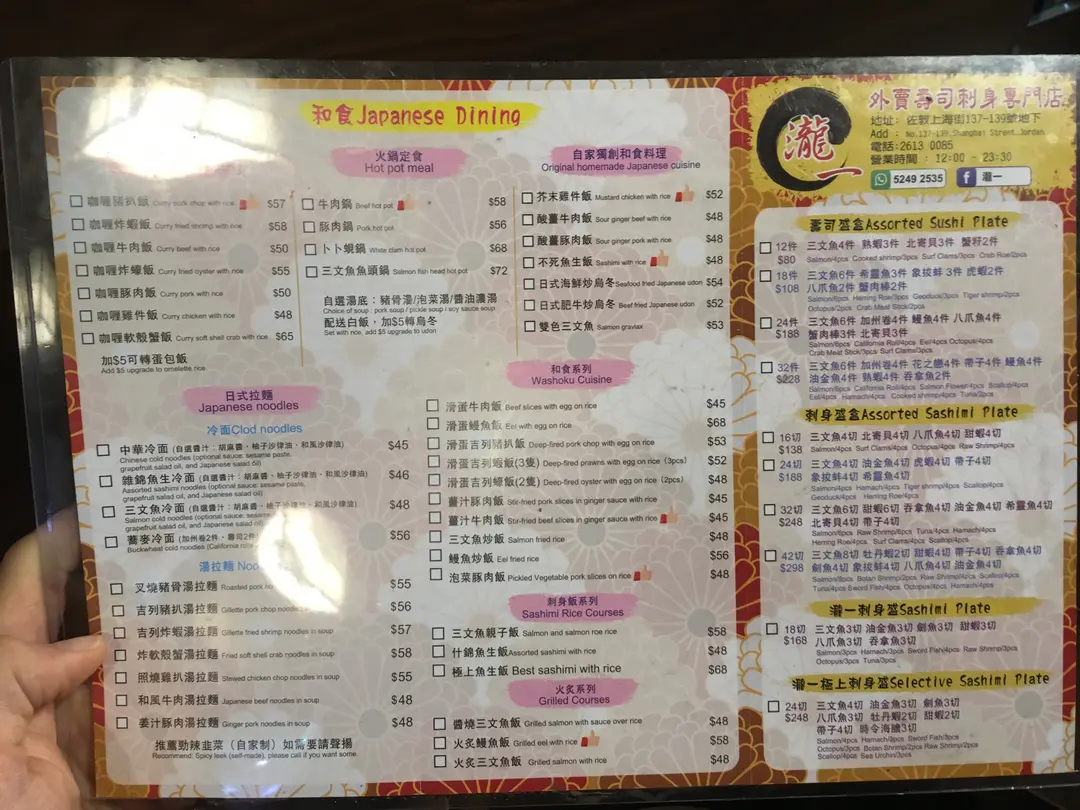 和食Japanese Dining
咖喱豬扒飯 Curry pork chop with rice $57
咖喱炸蝦飯 Curry fried shrimp with rice $58
咖喱牛肉飯 Curry beef with rice $50
咖喱炸蠔飯 Curry fried oyster with rice $55
咖喱豚肉飯 Curry pork with rice $50
咖喱雞件飯 Curry chicken with rice $48
咖喱軟殼蟹飯 Curry soft shell crab with rice $65
加$5可轉蛋包飯
Add $5 upgrade to omelette rice
火鍋定食
Hot pot meal
牛肉鍋 Beef hot pot $58
豚肉鍋 Pork hot pot $56
卜卜蜆鍋 White clam hot pot $68
三文魚魚頭鍋 Salmon fish head hot pot $72
自選湯底：豬骨湯/泡菜湯/醬油濃湯
Choice of soup : pork soup / pickle soup / soy sauce soup
配送白飯，加$5轉烏冬
Set with rice, add $5 upgrade to udon
自家獨創和食料理
Original homemade Japanese cuisine
芥末雞件飯 Mustard chicken with rice $52
酸薑牛肉飯 Sour ginger beef with rice $48
酸薑豚肉飯 Sour ginger pork with rice $48
不死魚生飯 Sashimi with rice $48
日式海鮮炒烏冬 Seafood fried Japanese udon $54
日式肥牛炒烏冬 Beef fried Japanese udon $52
雙色三文魚 Salmon gravlax $53
日式拉麵
Japanese noodles
冷面Clod noodles
中華冷面 (自選醬汁：胡麻醬、柚子沙律油、和風沙律油) $45
Chinese cold noodles (optional sauce: sesame paste,
grapefruit salad oil, and Japanese salad oil)
雜錦魚生冷面 (自選醬汁：胡麻醬、柚子沙律油、和風沙律油) $46
Assorted sashimi noodles (optional sauce: sesame paste,
grapefruit salad oil, and Japanese salad oil)
三文魚冷面 (自選醬汁：胡麻醬、柚子沙律油、和風沙律油) $48
Salmon cold noodles (optional sauce: sesame paste,
grapefruit salad oil, and Japanese salad oil)
蕎麥冷面 (加州卷2件、壽司2件) $56
Buckwheat cold noodles (California
湯拉麵
叉燒豬骨湯拉麵 Roasted pork $55
吉列豬扒湯拉麵 Gillette pork chop noodles $56
吉列炸蝦湯拉麵 Gillette fried shrimp noodles in soup $57
炸軟殼蟹湯拉麵 Fried soft shell crab noodles in soup $58
照燒雞扒湯拉麵 Stewed chicken chop noodles in soup $55
和風牛肉湯拉麵 Japanese beef noodles in soup $48
姜汁豚肉湯拉麵 Ginger pork noodles in soup $48
推薦勁辣韭菜（自家制）如需要請聲揚
Recommend: Spicy leek (self-made), please call if you want some
和食系列
Washoku Cuisine
滑蛋牛肉飯 Beef slices with egg on rice $45
滑蛋鰻魚飯 Eel with egg on rice $68
滑蛋吉列豬扒飯 Deep-fired pork chop with egg on rice $53
滑蛋吉列蝦飯(3隻) Deep-fired prawns with egg on rice (3pcs) $52
滑蛋吉列蠔飯(2隻) Deep-fired oyster with egg on rice (2pcs) $48
薑汁豚肉飯 Stir-fried pork slices in ginger sauce with rice $45
薑汁牛肉飯 Stir-fried beef slices in ginger sauce with rice $45
三文魚炒飯 Salmon fried rice $48
鰻魚炒飯 Eel fried rice $56
泡菜豚肉飯 Pickled Vegetable pork slices on rice $48
刺身飯系列
Sashimi Rice Courses
三文魚親子飯 Salmon and salmon roe rice $58
什錦魚生飯 Assorted sashimi with rice $48
極上魚生飯 Best sashimi with rice $68
火炙系列
Grilled Courses
醬燒三文魚飯 Grilled salmon with sauce over rice $48
火炙鰻魚飯 Grilled eel with rice $58
火炙三文魚飯 Grilled salmon with rice $48
瀧一
外賣壽司刺身專門店
地址：佐敦上海街137-139號地下
Add : No.137-139,Shanghai Street,Jordan
電話:2613 0085
營業時間 : 12:00 - 23:30
5249 2535 瀧一
壽司盛盒Assorted Sushi Plate
12件 三文魚4件 熟蝦3件 北寄貝3件 蟹籽2件
$80 Salmon/4pcs Cooked shrimp/3pcs Surf Clams/3pcs Crab Roe/2pcs
18件 三文魚6件 希靈魚3件 象拔蚌3件 虎蝦2件
$108 八爪魚2件 蟹肉棒2件
Salmon/6pcs Herring Roe/3pcs Geoduck/3pcs Tiger shrimp/2pcs
Octopus/2pcs Crab Meat Stick/2pcs
24件 三文魚6件 加州卷4件 鰻魚4件 八爪魚4件
$188 蟹肉棒3件 北寄貝3件
Salmon/6pcs California Roll/4pcs Eel/4pcs Octopus/4pcs
Crab Meat Stick/3pcs Surf Clams/3pcs
32件 三文魚6件 加州卷4件 花之戀4件 帶子4件 鰻魚4件
$228 油金魚4件 熟蝦4件 吞拿魚2件
Salmon/6pcs California Roll/4pcs Salmon Flower/4pcs Scallop/4pcs
Eel/4pcs Hamachi/4pcs Cooked shrimp/4pcs Tuna/2pcs
刺身盛盒Assorted Sashimi Plate
16切 三文魚4切 北寄貝4切 八爪魚4切 甜蝦4切
$138 Salmon/4pcs Surf Clams/4pcs Octopus/4pcs Raw Shrimp/4pcs
24切 三文魚4切 油金魚4切 虎蝦4切 帶子4切
$188 象拔蚌4切 希靈魚4切
Salmon/4pcs Hamachi/4pcs Tiger shrimp/4pcs Scallop/4pcs
Geoduck/4pcs Herring Roe/4pcs
32切 三文魚6切 甜蝦6切 吞拿魚4切 油金魚4切 希靈魚4切
$248 北寄貝4切 帶子4切
Salmon/6pcs Raw Shrimp/6pcs Tuna/4pcs Hamachi/4pcs
Herring Roe/4pcs Surf Clams/4pcs Scallop/4pcs
42切 三文魚8切 牡丹蝦2切 甜蝦4切 帶子4切 吞拿魚4切
$298 劍魚4切 象拔蚌4切 八爪魚4切 油金魚4切
Salmon/8pcs Botan Shrimp/2pcs Raw Shrimp/4pcs Scallop/4pcs
Tuna/4pcs Sword Fish/4pcs Octopus/4pcs Hamachi/4pcs
瀧一刺身盛Sashimi Plate
18切 三文魚3切 油金魚3切 劍魚3切 甜蝦3切
$168 八爪魚3切 吞拿魚3切
Salmon/3pcs Hamachi/3pcs Sword Fish/4pcs Raw Shrimp/3pcs
Octopus/3pcs Tuna/3pcs
瀧一極上刺身盛Selective Sashimi Plate
24切 三文魚4切 油金魚3切 劍魚3切
$248 八爪魚3切 牡丹蝦2切 甜蝦2切
帶子4切 時令海膽3切
Salmon/4pcs Hamachi/3pcs Sword Fish/3pcs
Octopus/3pcs Botan Shrimp/2pcs Raw Shrimp/2pcs
Scallop/4pcs Sea Urchin/3pcs